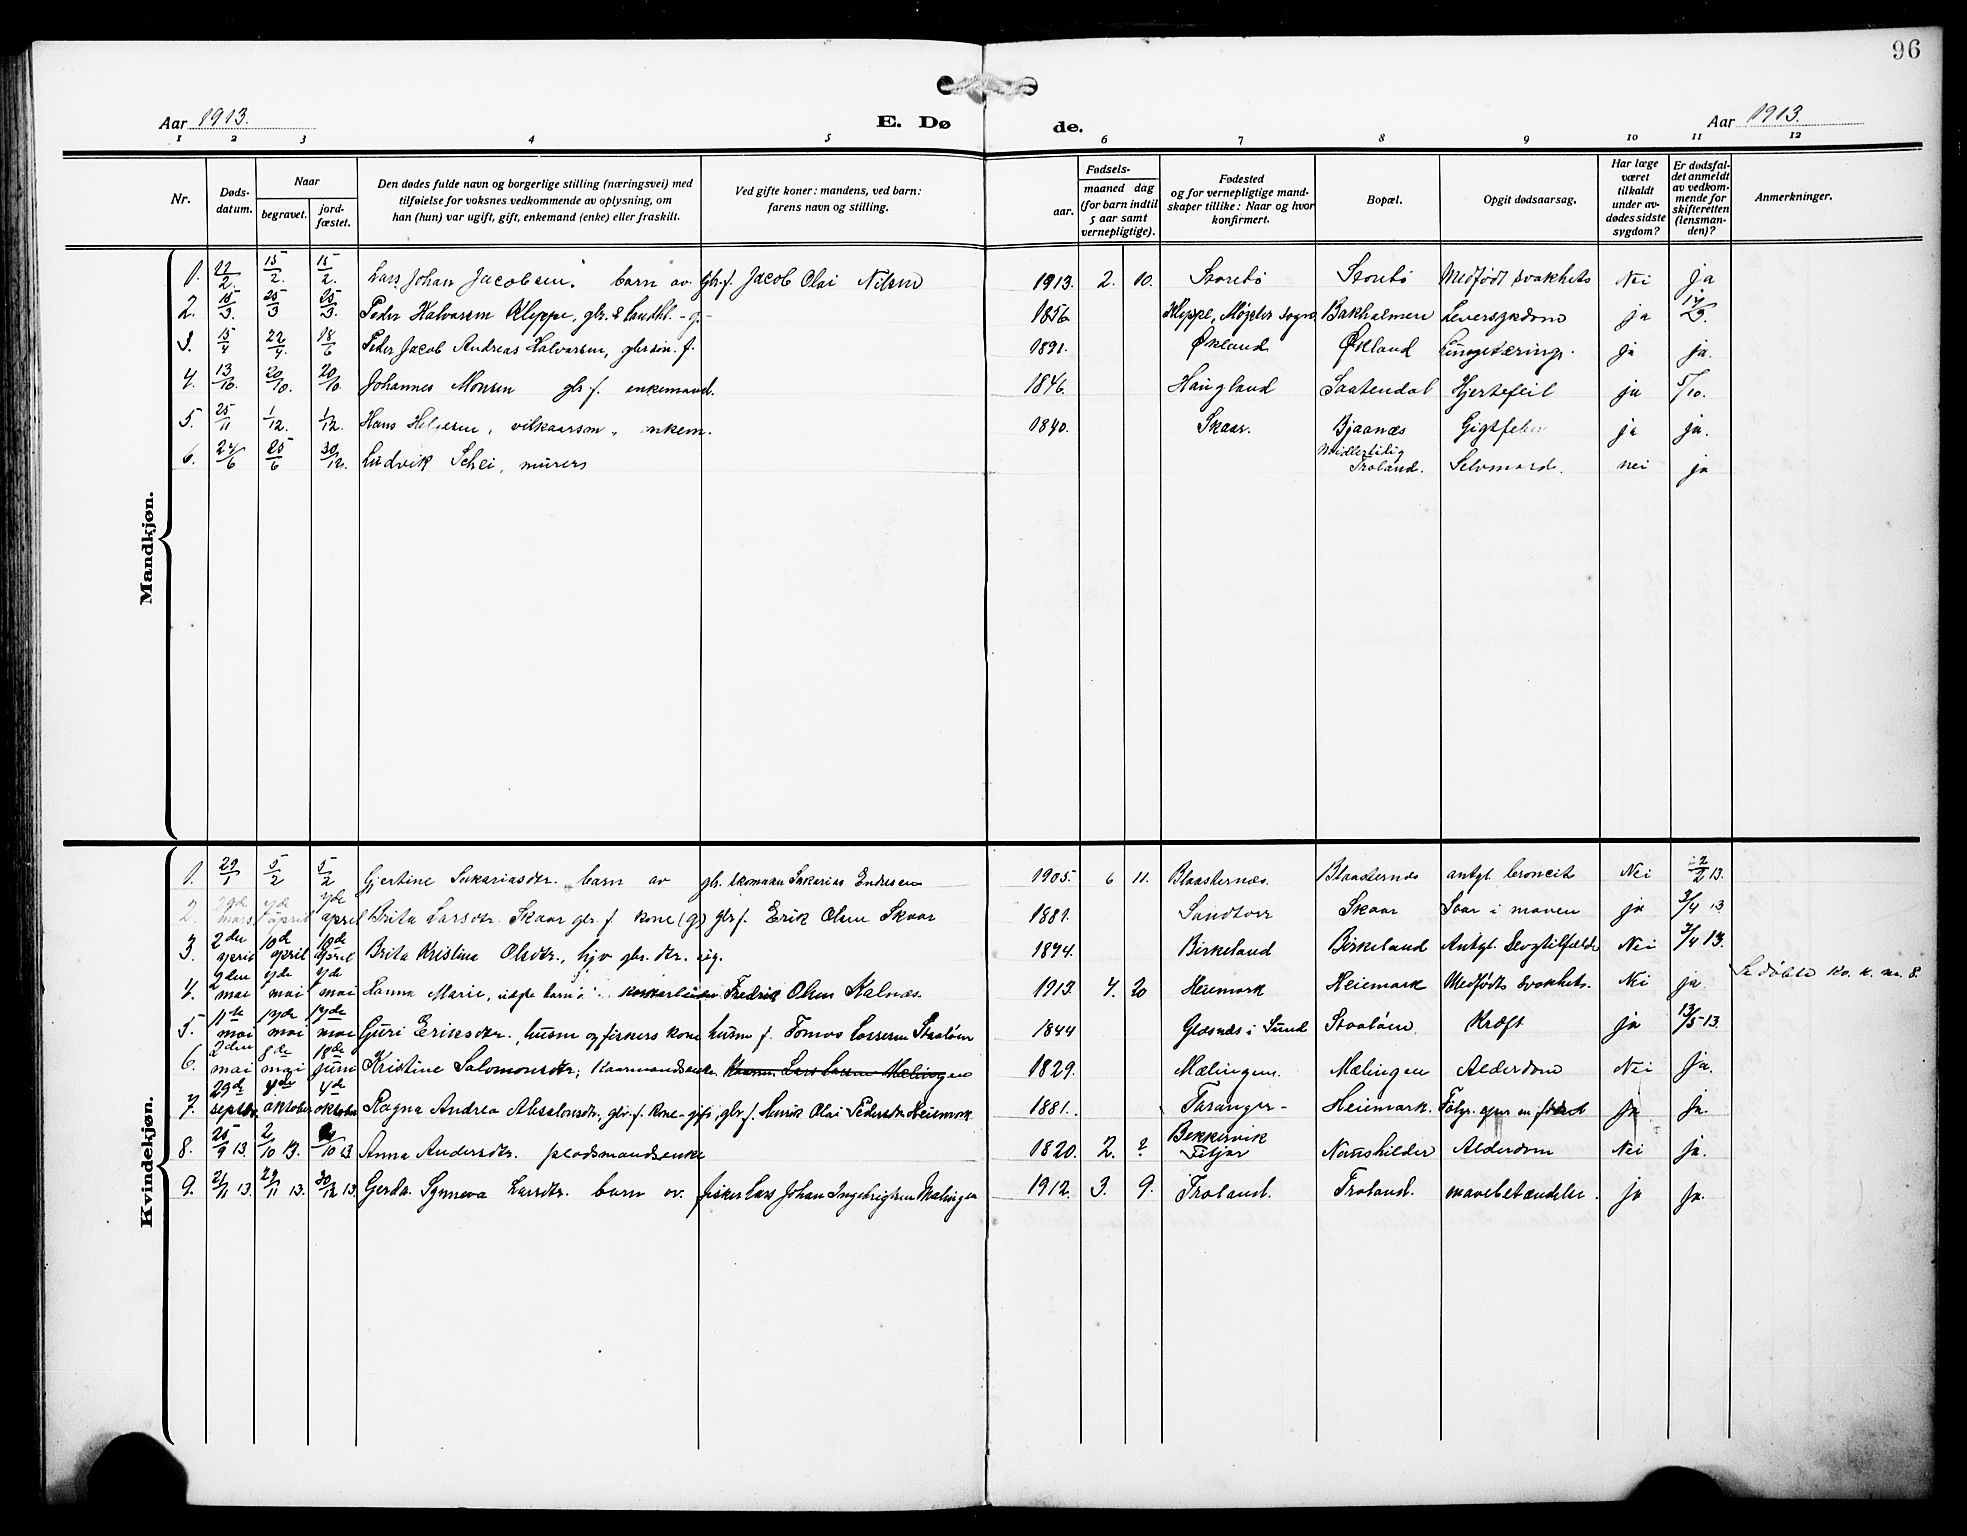 96
Aar 1913. E. Dø de. Aar 1913.
1 2 3 4 5 6 7 8 9 10 11 12
Nr. Døds-datum. Naar begravet. jord-fæstet. Den dødes fulde navn og borgerlige stilling (næringsvei) med tilføielse for voksnes vedkommende av oplysning, om han (hun) var ugift, gift, enkemand (enke) eller fraskilt. Ved gifte koner: mandens, ved barn: farens navn og stilling. Fødsels- aar. maaned dag (for barn indtil 5 aar samt vernepligtige). Fødested og for vernepligtige mand-skaper tillike: Naar og hvor konfirmert. Bopæl. Opgit dødsaarsag. Har læge været tilkaldt under av-dødes sidste sygdom? Er dødsfal-det anmeldt av vedkom-mende for skifteretten (lensman-den)? Anmerkninger.
Mandkjøn.
1. 15/2. 15/2. Lars Johan Jacobsen. barn av gbr.f. Jacob Olai Nilsen 1913. 2. 10. Storebø Storebø Medfødt svakhet Nei ja
2. 15/3. 25/3 25/3. Peder Halvorsen Kleppe, gbr. & landhl. -g- 1856 Kleppe, Møgster sogn. Bakholmen Leversygdom ja
3. 15/4 22/4. 18/6 Peder Jacob Andreas Halvorsen, gbr.søn. f. 1891. Økland Økland Lungetæring. ja ja.
4. 13/10. 20/10. 20/10 Johannes Monsen gbr.f. enkemand. 1846. Haugland Saatendal Hjertefeil ja 5/10.
5. 25/11 1/12. 1/12. Hans Helgesen, vilkaarsm., enkem. 1840. Skaar. Bjaanæs Gigtfeber ja ja.
6. 24/6 25/6 30/12. Ludvik Schei, murers Midlertidig Troland. Selvmord. nei ja
Kvindekjøn.
1. 29/1 5/2 5/2 Gjertine Sakariasdtr. barn av gbr. skomaker Sakarias Endresen 1905. 6 11. Blaasternæs. Blaasternæs antgl. broncit Nei 2/2 13.
2. mars april april Brita Larsdtr. Skaar gbr. f. kone (g) gbr f. Erik Olsen Skaar 1881. Sandtorv Skaar Saar i maven ja 3/4 13
3. 2den april 10de april 10de april Brita Kristina Olsdtr., hjv gbr. dtr. ug. 1874. Birkeland Birkeland Antgl. Nei 3/4 13.
4. mai mai mai Hanna Marie, uegte barn Fredrik Olsen Kalnæs. 1913. 4. 20 Heiemark Heiemark Medfødt svakhet. Nei ja Se døbte kv. k. nr. 8.
5. 11te mai 17de mai 17de mai Guri Eriksdtr., husm og fiskers kone husm f. Tomas Larssen Staaløen 1844 Glæsnæs i Sund Staaløen Kræft ja 13/5 13.
6. 2den mai 8de mai 18de juni Kristine Salomonsdtr, kaarmandsenke. Kaarm. Lars Larsen Mælingen 1829. Mælingen. Mælingen Alderdom Nei Ja.
7. 29de septbr. 4de oktober 4de oktober Ragna Andrea Absalonsdtr., gbr. f. kone - gift, gbr f. Henrik Olai Pedersen Heiemark 1881. Taranger - Heiemark. Følger efter en fødsel ja ja.
8. 25/9 13. 2/10 13. /10 13 Anna Andersdtr. pladsmandsenke 1820. 2. ? Bekkervik Fitjar Naushilder Alderdom Nei ja.
9. 21/11 13. 29/11 13. 30/12 13. Gerda Synneva Larsdtr. barn av. fisker Lars Johan Ingebrigtsen Mælingen 1912. 3. 9. Troland. Troland. mavebetændelse. ja ja.